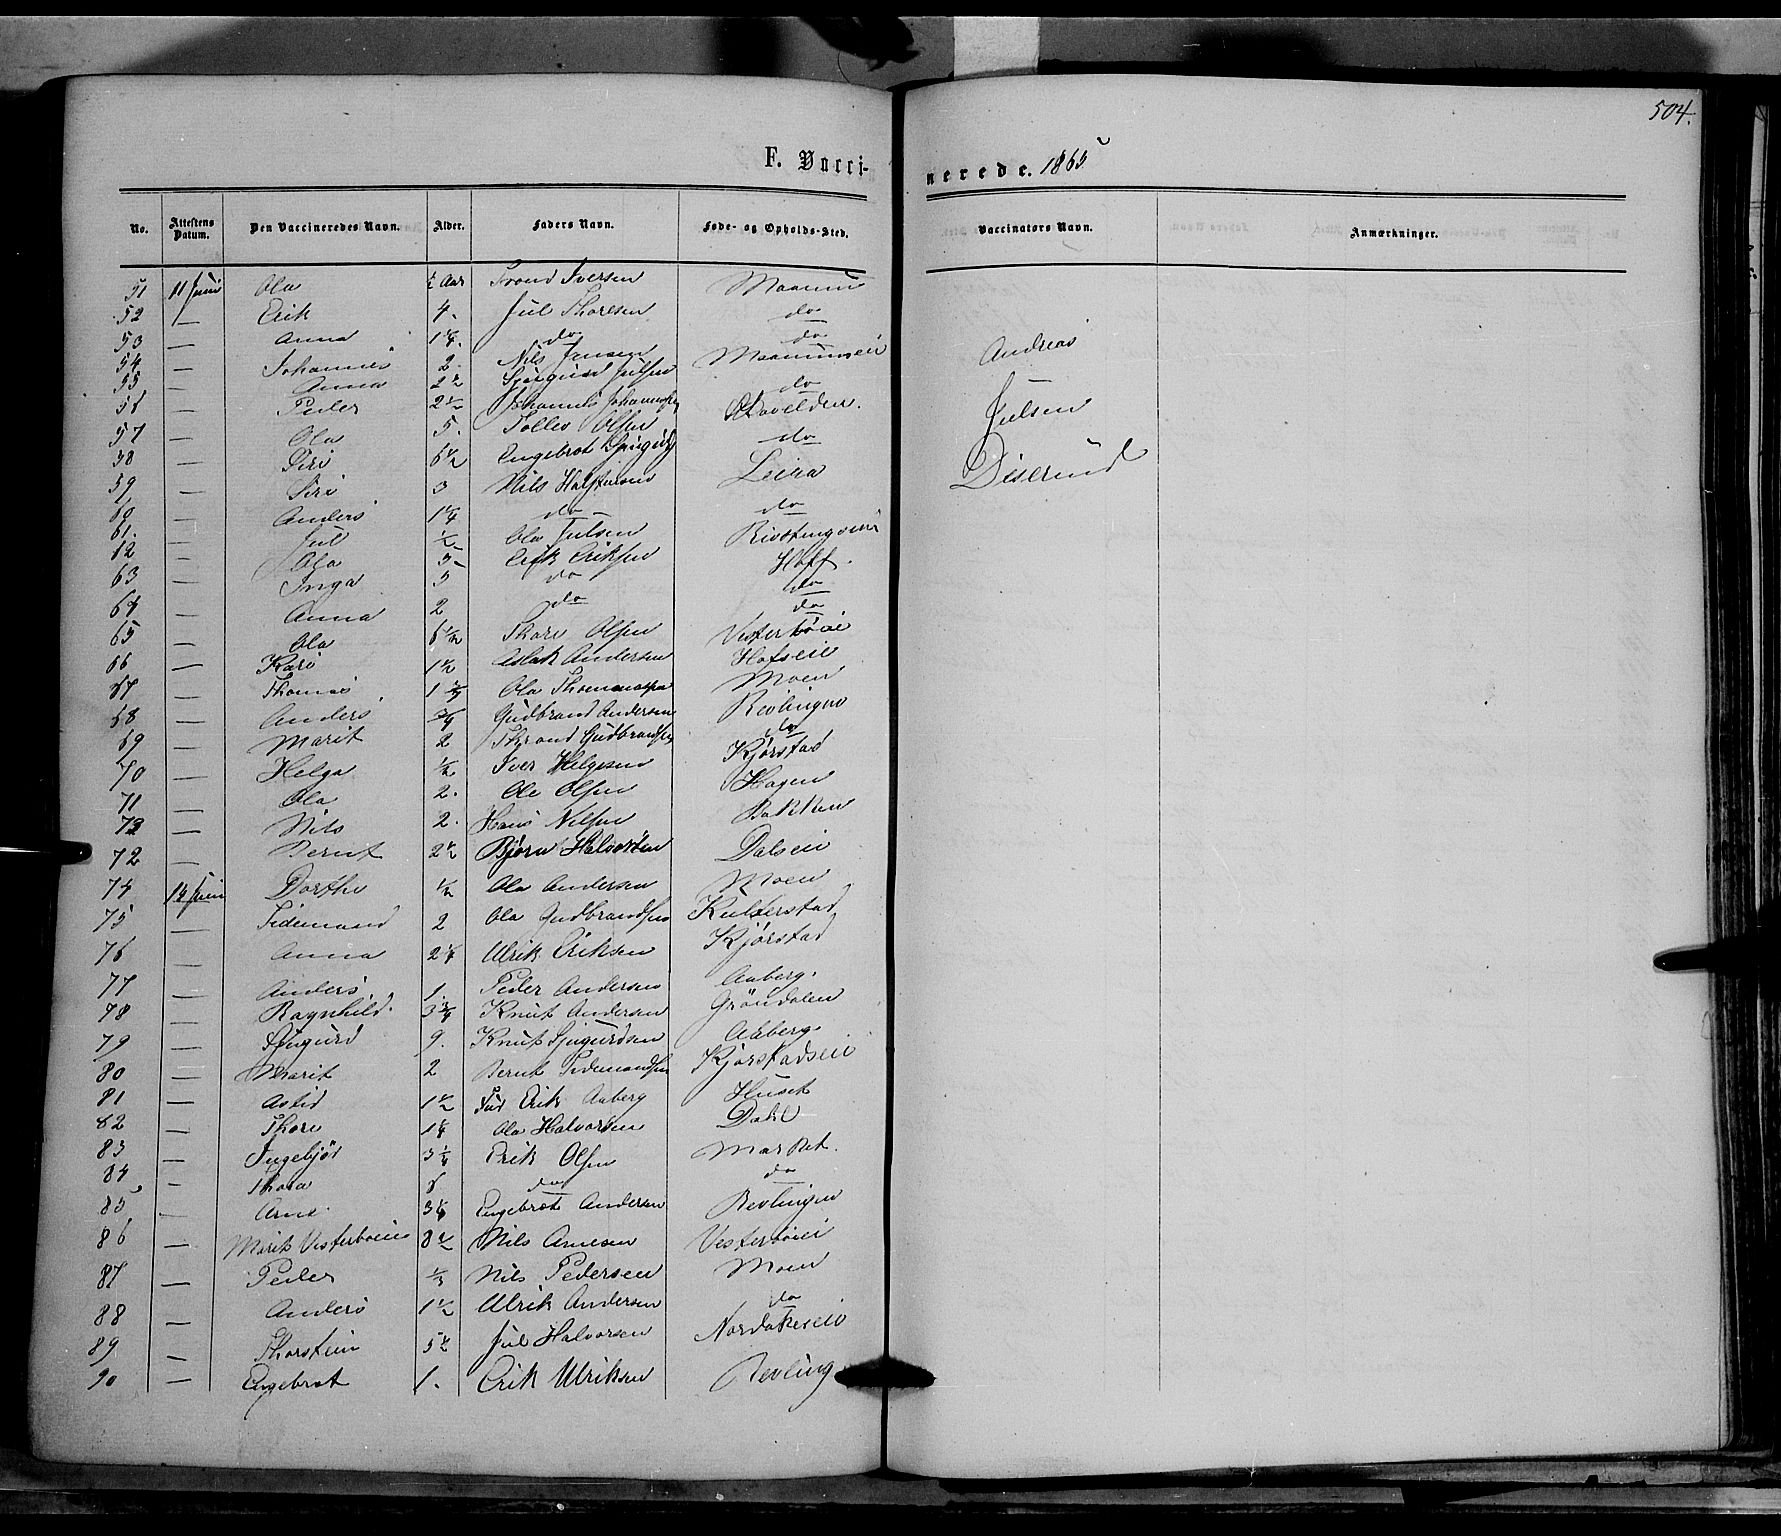 504.
F. Vacci-
nerede. 1865
No. Attestens Datum. Den Vaccineredes Navn. Alder. Faders Navn. Føde- og Opholds-Sted. Vaccinators Navn. Anmærkninger.
51 11 Juni Ola ½ Aar Trond Iversen
52 — Erik 4. Jul Thoresen do
53 — Anna 1¼. do do
54 — Johannes 2. Nils Jansen
55 — Anna 2½ Julsen do
56 — Peder 2½ Johannes
57 — Ola 5. Tollev Olsen do
58 — Siri 6½ Engebret
59 — Siri 3 Nils Leira
60 — Anders 1¼ do do
61. — Jul ½ Ola Julsen
62 — Ola 5 Erik Eriksen Hoff.
63 — Inga 3 do do
64 — Anna 2 do do
65 — Ola 6½ Thore Olsen
66 — Kari 1½ Aslak Andersen Hofseie
67 — Thomas Ola Moen
68 — Anders ¾ Gudbrand Andersen Revlingen
69 — Marit 2 Gudbrandsen do
70 — Helga ½ Iver Helgesen Kjørstad
71 — Ola 2. Ole Olsen Hagen
73 — Nils 2. Hans Nilsen Bakken
72 — Bernt 2½ Bjørn Halvorsen Dalseie
74 14 Juni Dorthe ½ Ola Andersen Moen
75 — Tidemand 2 Ola Gudbrandsen
76 — Anna 2¼ Ulrik Eriksen Kjørstad
77 — Anders 1. Peder Andersen Aaberg.
78 — Ragnhild. 3¾ Knut Andersen Grøndalen
79 — 9. Knut Sjugurdsen Aaberg
80 — Marit 2 Bernt Tidemandsen Kjørstadseie
81 — Astid 1½ Erik Aaberg Huset
82 — Thore 1¼ Ola Halvorsen Dahl
83 — Ingebjør 3¼ Erik Olsen
84 — Thora do do
85 — Arne. Engebret Andersen Revlingen
86 — Marit 8½ Nils Arnesen
87 — Peder ⅓ Nils Pedersen Moen
88 — Anders 1½ Ulrik Andersen do
89 — Thorstein 5½ Jul Halvorsen
90 — Engebret 1. Erik Ulriksen Revling
Andreas
Julsen
Diserud